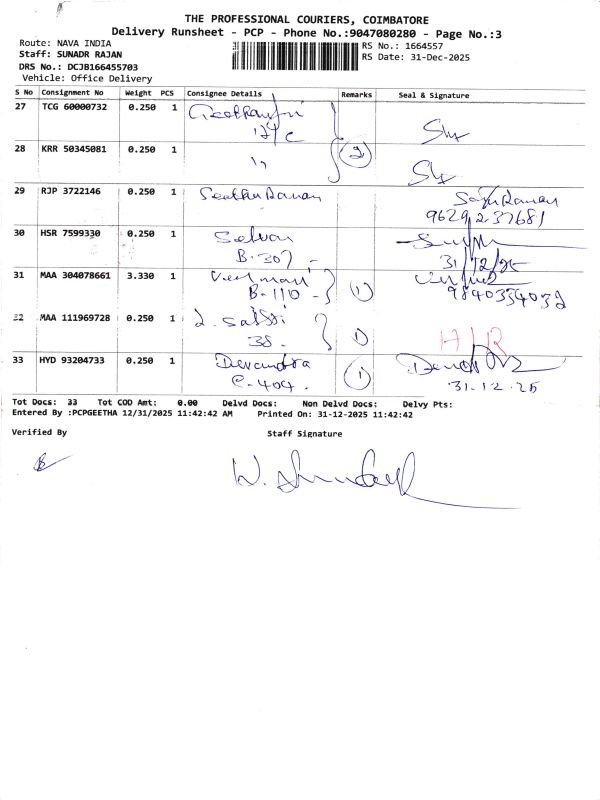 THE PROFESSIONAL COURIERS, COIMBATORE
Delivery Runsheet - PCP - Phone No.:9047080280 - Page No.:3
Route: NAVA INDIA
Staff: SUNADR RAJAN
DRS No.: DCJB166455703
Vehicle: Office Delivery
RS No.: 1664557
RS Date: 31-Dec-2025
S No Consignment No Weight PCS Consignee Details Remarks Seal & Signature
27 TCG 60000732 0.250 1
28 KRR 50345081 0.250 1 2
29 RJP 3722146 0.250 1
9629237681
30 HSR 7599330 0.250 1 Selvan
B-307 -
31/12/25
31 MAA 304078661 3.330 1
B-110 - 1 9840334032
32 MAA 111969728 0.250 1
38. 1
33 HYD 93204733 0.250 1 Devandra
C-404. 1 31-12-25
Tot Docs: 33 Tot COD Amt: 0.00 Delvd Docs: Non Delvd Docs: Delvy Pts:
Entered By :PCPGEETHA 12/31/2025 11:42:42 AM Printed On: 31-12-2025 11:42:42
Verified By Staff Signature